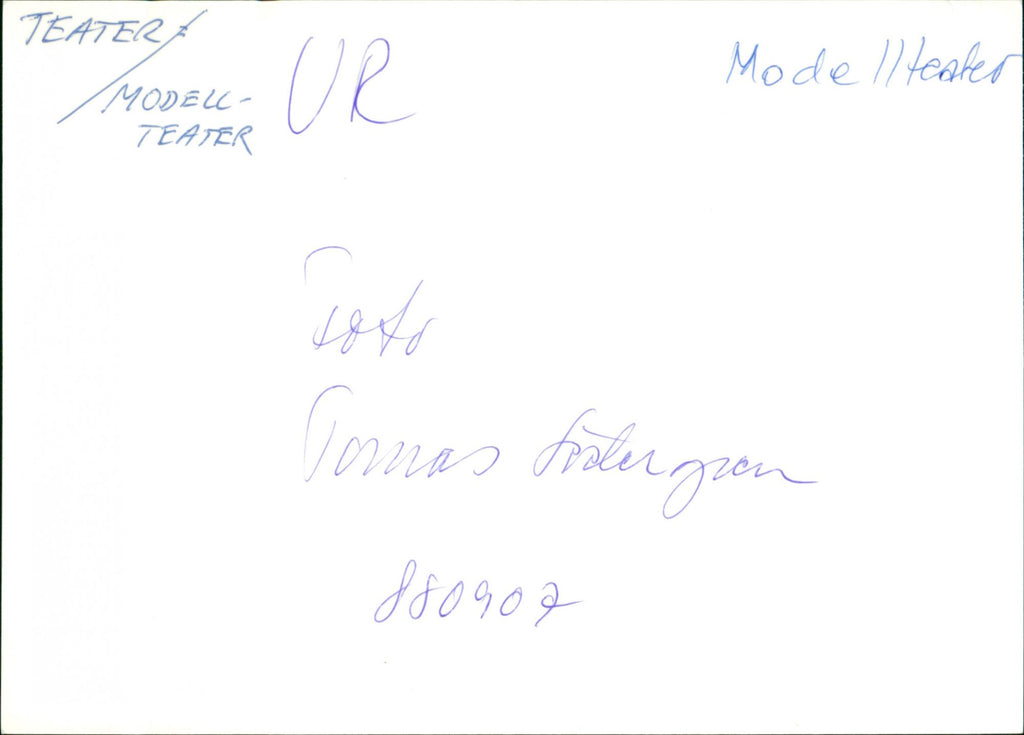 TEATER/
MODELL-
TEATER
UR
Modellteater
Foto
Tomas Södergren
880907